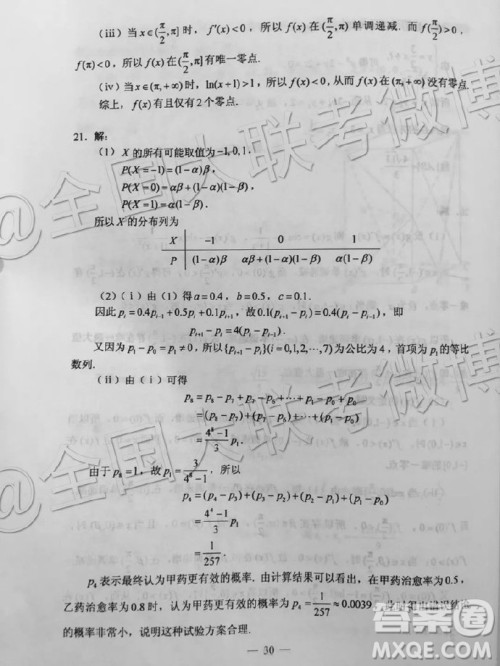 (iii) 当 x∈(π/2,π] 时, f′(x)<0, 所以 f(x) 在 (π/2,π) 单调递减. 而 f(π/2)>0,
f(π)<0, 所以 f(x) 在 (π/2,π] 有唯一零点.
(iv) 当 x∈(π,+∞) 时, ln(x+1)>1, 所以 f(x)<0, 从而 f(x) 在 (π,+∞) 没有零点.
综上, f(x) 有且仅有 2 个零点.
21. 解:
(1) X 的所有可能取值为 -1,0,1.
P(X=-1)=(1-α)β,
P(X=0)=αβ+(1-α)(1-β),
P(X=1)=α(1-β).
所以 X 的分布列为
X -1 0 1
P (1-α)β αβ+(1-α)(1-β) α(1-β)
(2) (i) 由 (1) 得 a=0.4, b=0.5, c=0.1.
因此 pᵢ=0.4pᵢ₋₁+0.5pᵢ+0.1pᵢ₊₁, 故 0.1(pᵢ₊₁-pᵢ)=0.4(pᵢ-pᵢ₋₁), 即
pᵢ₊₁-pᵢ=4(pᵢ-pᵢ₋₁).
又因为 p₁-p₀=p₁≠0, 所以 {pᵢ₊₁-pᵢ}(i=0,1,2,⋯,7) 为公比为 4, 首项为 p₁ 的等比
数列.
(ii) 由 (i) 可得
p₈=p₈-p₇+p₇-p₆+⋯+p₁-p₀+p₀
=(p₈-p₇)+(p₇-p₆)+⋯+(p₁-p₀)
=(4⁸-1)/3 p₁.
由于 p₈=1, 故 p₁=3/(4⁸-1), 所以
p₄=(p₄-p₃)+(p₃-p₂)+(p₂-p₁)+(p₁-p₀)
=(4⁴-1)/3 p₁
=1/257.
p₄ 表示最终认为甲药更有效的概率. 由计算结果可以看出, 在甲药治愈率为 0.5,
乙药治愈率为 0.8 时, 认为甲药更有效的概率为 p₄=1/257≈0.0039, 此时得出错误结论
的概率非常小, 说明这种试验方案合理.
— 30 —
@全国大联考微博
@全国大联考微博
答案圈
MXQE.COM